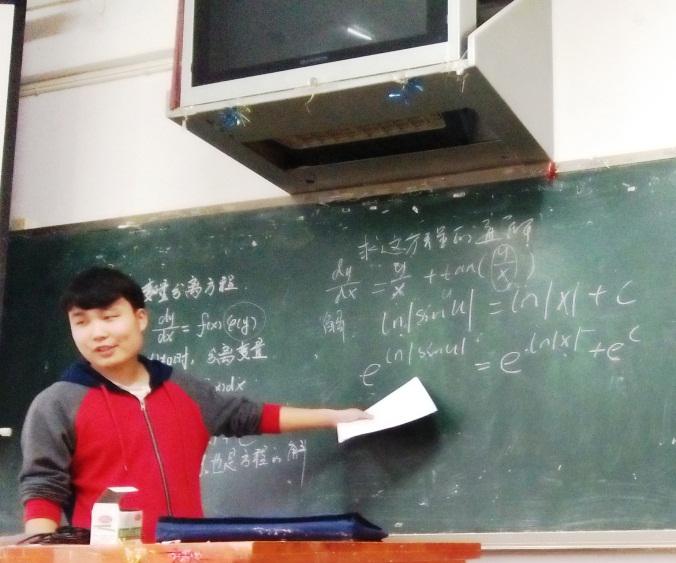 变量分离方程.
dy/dx = f(x)φ(y)
时, 分离变量
)dx
也是方程的解
求这方程的通解
dy/dx = y/x + tan(y/x)
解: ln|sinu| = ln|x| + C
e^{ln|sinu|} = e^{ln|x|} + e^C